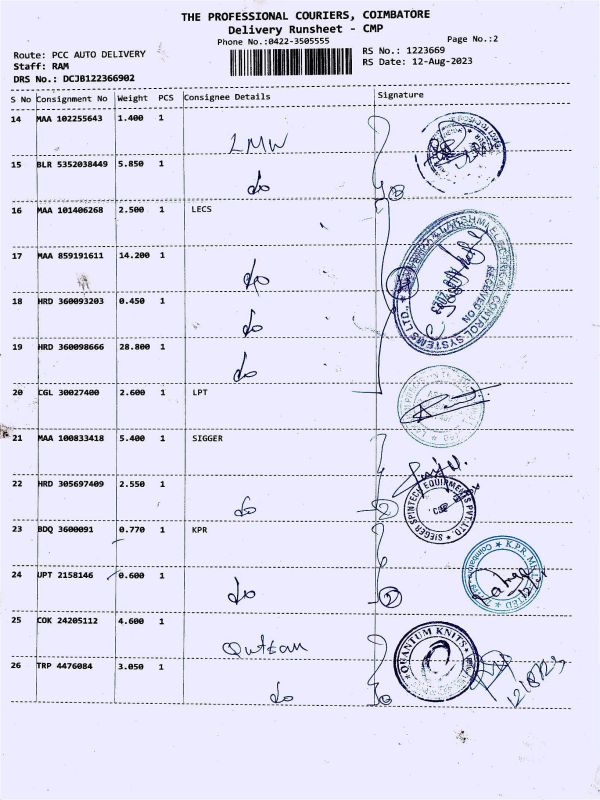 THE PROFESSIONAL COURIERS, COIMBATORE
Delivery Runsheet - CMP
Phone No.:0422-3505555 Page No.:2
Route: PCC AUTO DELIVERY RS No.: 1223669
Staff: RAM RS Date: 12-Aug-2023
DRS No.: DCJB122366902
S No Consignment No Weight PCS Consignee Details Signature
14 MAA 102255643 1.400 1 LMW
15 BLR 5352038449 5.850 1 do
16 MAA 101406268 2.500 1 LECS
17 MAA 859191611 14.200 1 do
LAKSHMI ELECTRICAL CONTROL SYSTEMS LTD.
RECEIVED ON
18 HRD 360093203 0.450 1 do
19 HRD 360098666 28.800 1 do
20 CGL 30027400 2.600 1 LPT
21 MAA 100833418 5.400 1 SIGGER
22 HRD 305697409 2.550 1 do
SIEGER SPINTECH EQUIPMENTS PVT.LTD
23 BDQ 3600091 0.770 1 KPR
24 UPT 2158146 0.600 1 do
K.P.R. Coimbatore
25 COK 24205112 4.600 1
QUANTUM KNITS
26 TRP 4476084 3.050 1 do
12/8/23